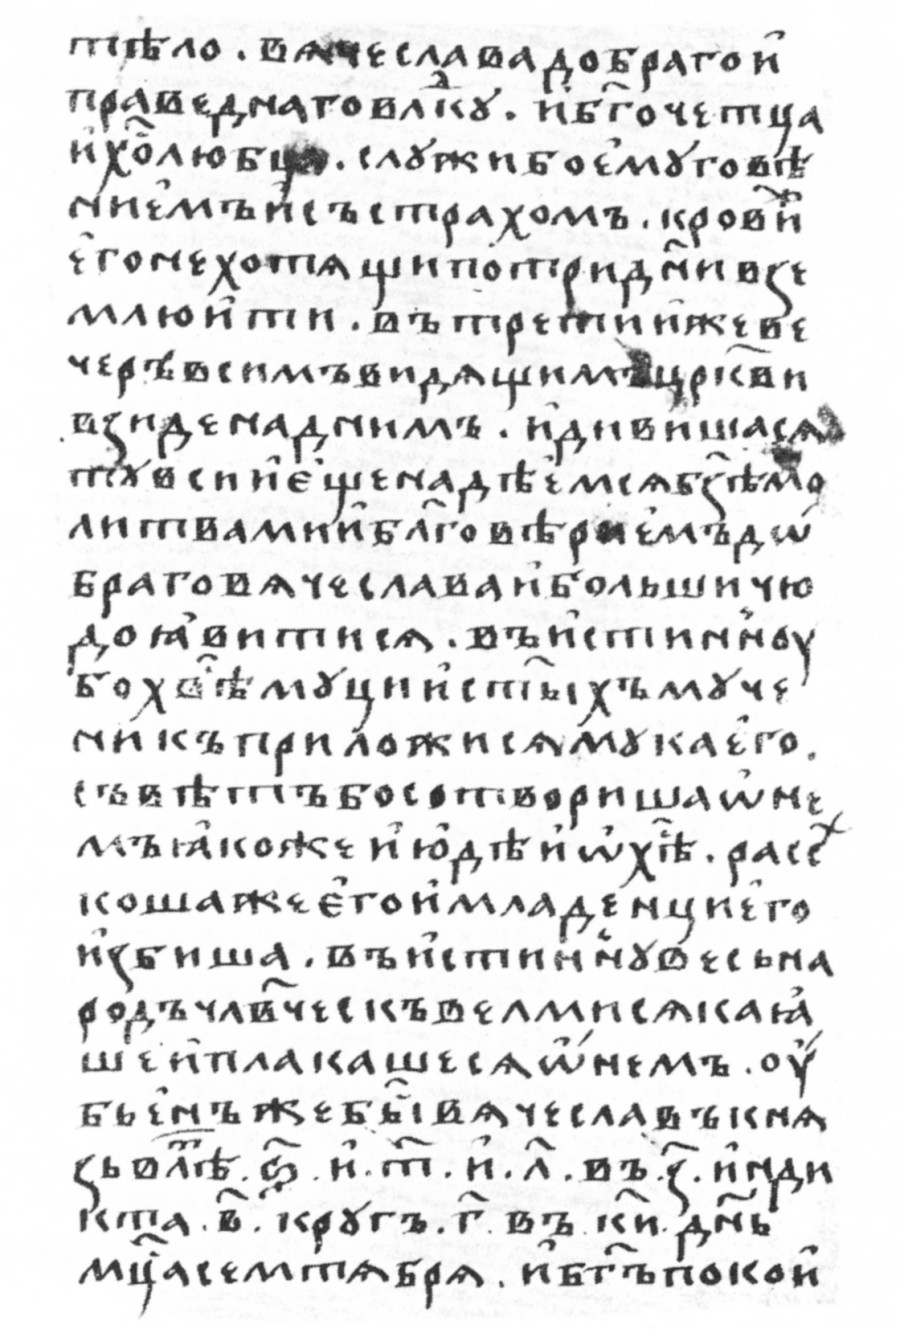 тѣло . вячеслава добраго й
праведнаго влⷣку . и бг҃очетца
и хо҃любца . служи бо емꙋ говѣ
ниемъ и съ страхомъ . кровиⷤ
его не хотящи по три дн҃и в зе
млю ити . въ третии же ве
черъ всимъ видящимъ цр҃кви
взиде над нимъ . и дивишася
тꙋ вси и еще надѣемся бз҃ѣ мо
литвами и бл҃говѣриемъ дѡ
браго вячеслава и больши чю
до ꙗвитися . въ истиннꙋ оу
бо хв҃ѣ мꙋци и ст҃ыхъ мꙋче
никъ приложися мꙋка его .
съвѣтъ бо сотвориша ѡ не
мъ ꙗкоже июдѣи ѡ х҃ѣ . рассѣ
коша же его и младенци его
избиша . въ истиннꙋ весь на
родъ члв҃ческъ велми ся каꙗ
ше и плакашеся ѡ немъ . оу
бьенъ же бы҃ вячеславъ кня
зь в лⷮѣ . ѕ҃ . и . т҃ . и . л҃ . въ . з҃ . инди
кта . в҃ . кругъ . г҃ . въ . к҃и . дн҃ь
мц҃а семтября . и бг҃ъ покои